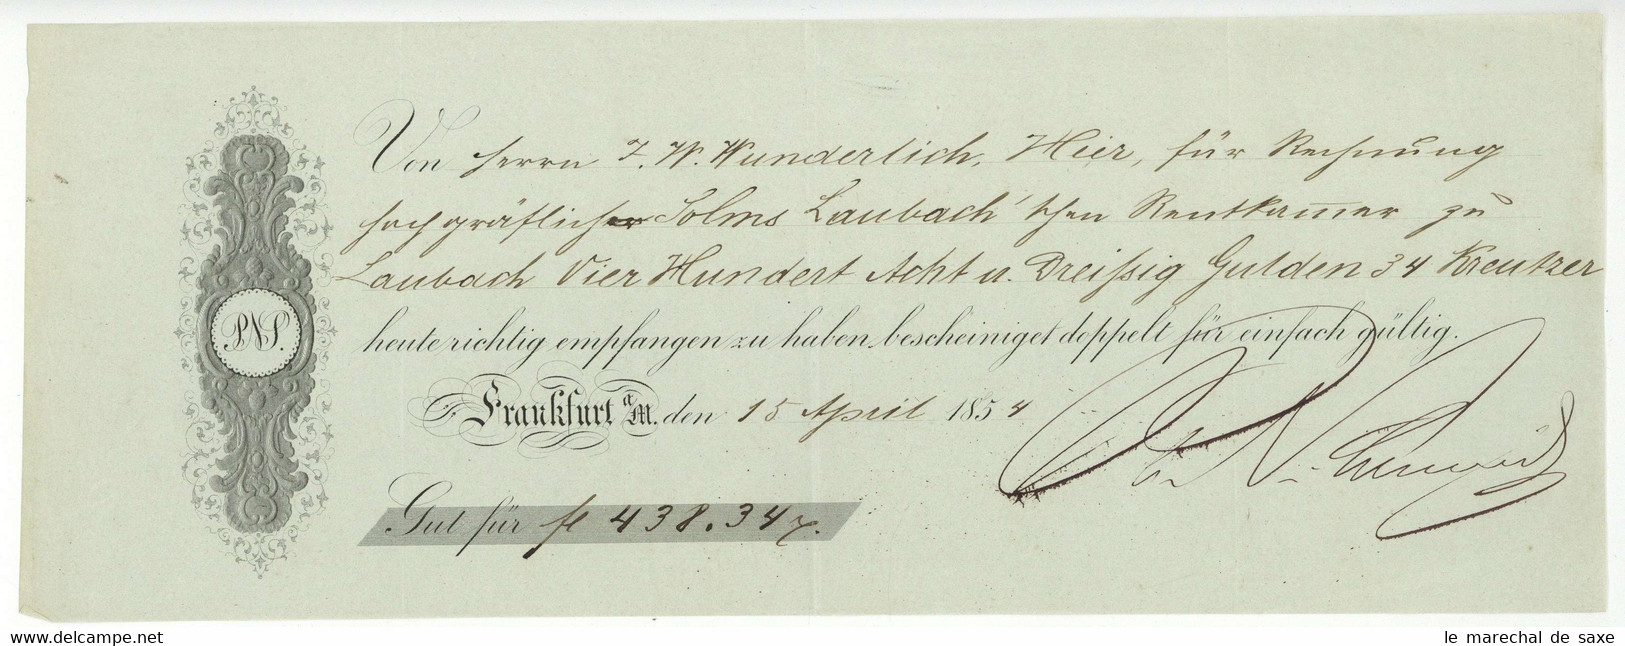 Von Herrn F. W. Wunderlich, Hier, für Rechnung
hochgräflicher Solms Laubach'schen Rentkam̅er zu
Laubach Vier Hundert Acht u. Dreißig Gulden 34 Kreutzer
heute richtig empfangen zu haben bescheiniget doppelt für einfach gültig.
Frankfurt a/M. den 15 April 1854
PNS.
Gut für fl 438.34 x.
le marechal de saxe
www.delcampe.net